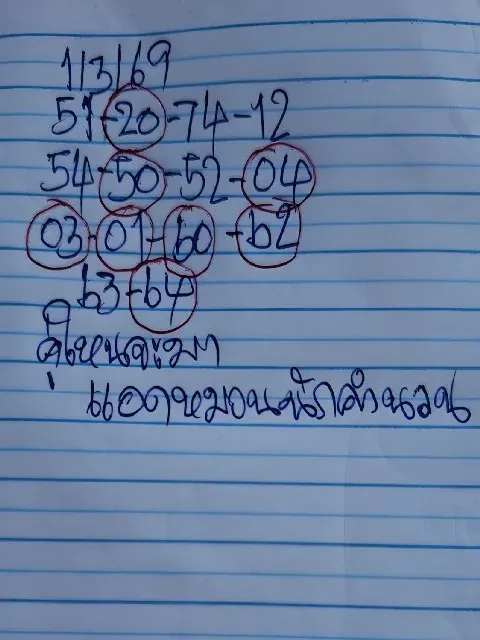 1/3/69
51-20-74-12
54-50-52-04
03-01-60-62
63-64
คู่ไหนจะมา
แอดหมวนนักคำนวน